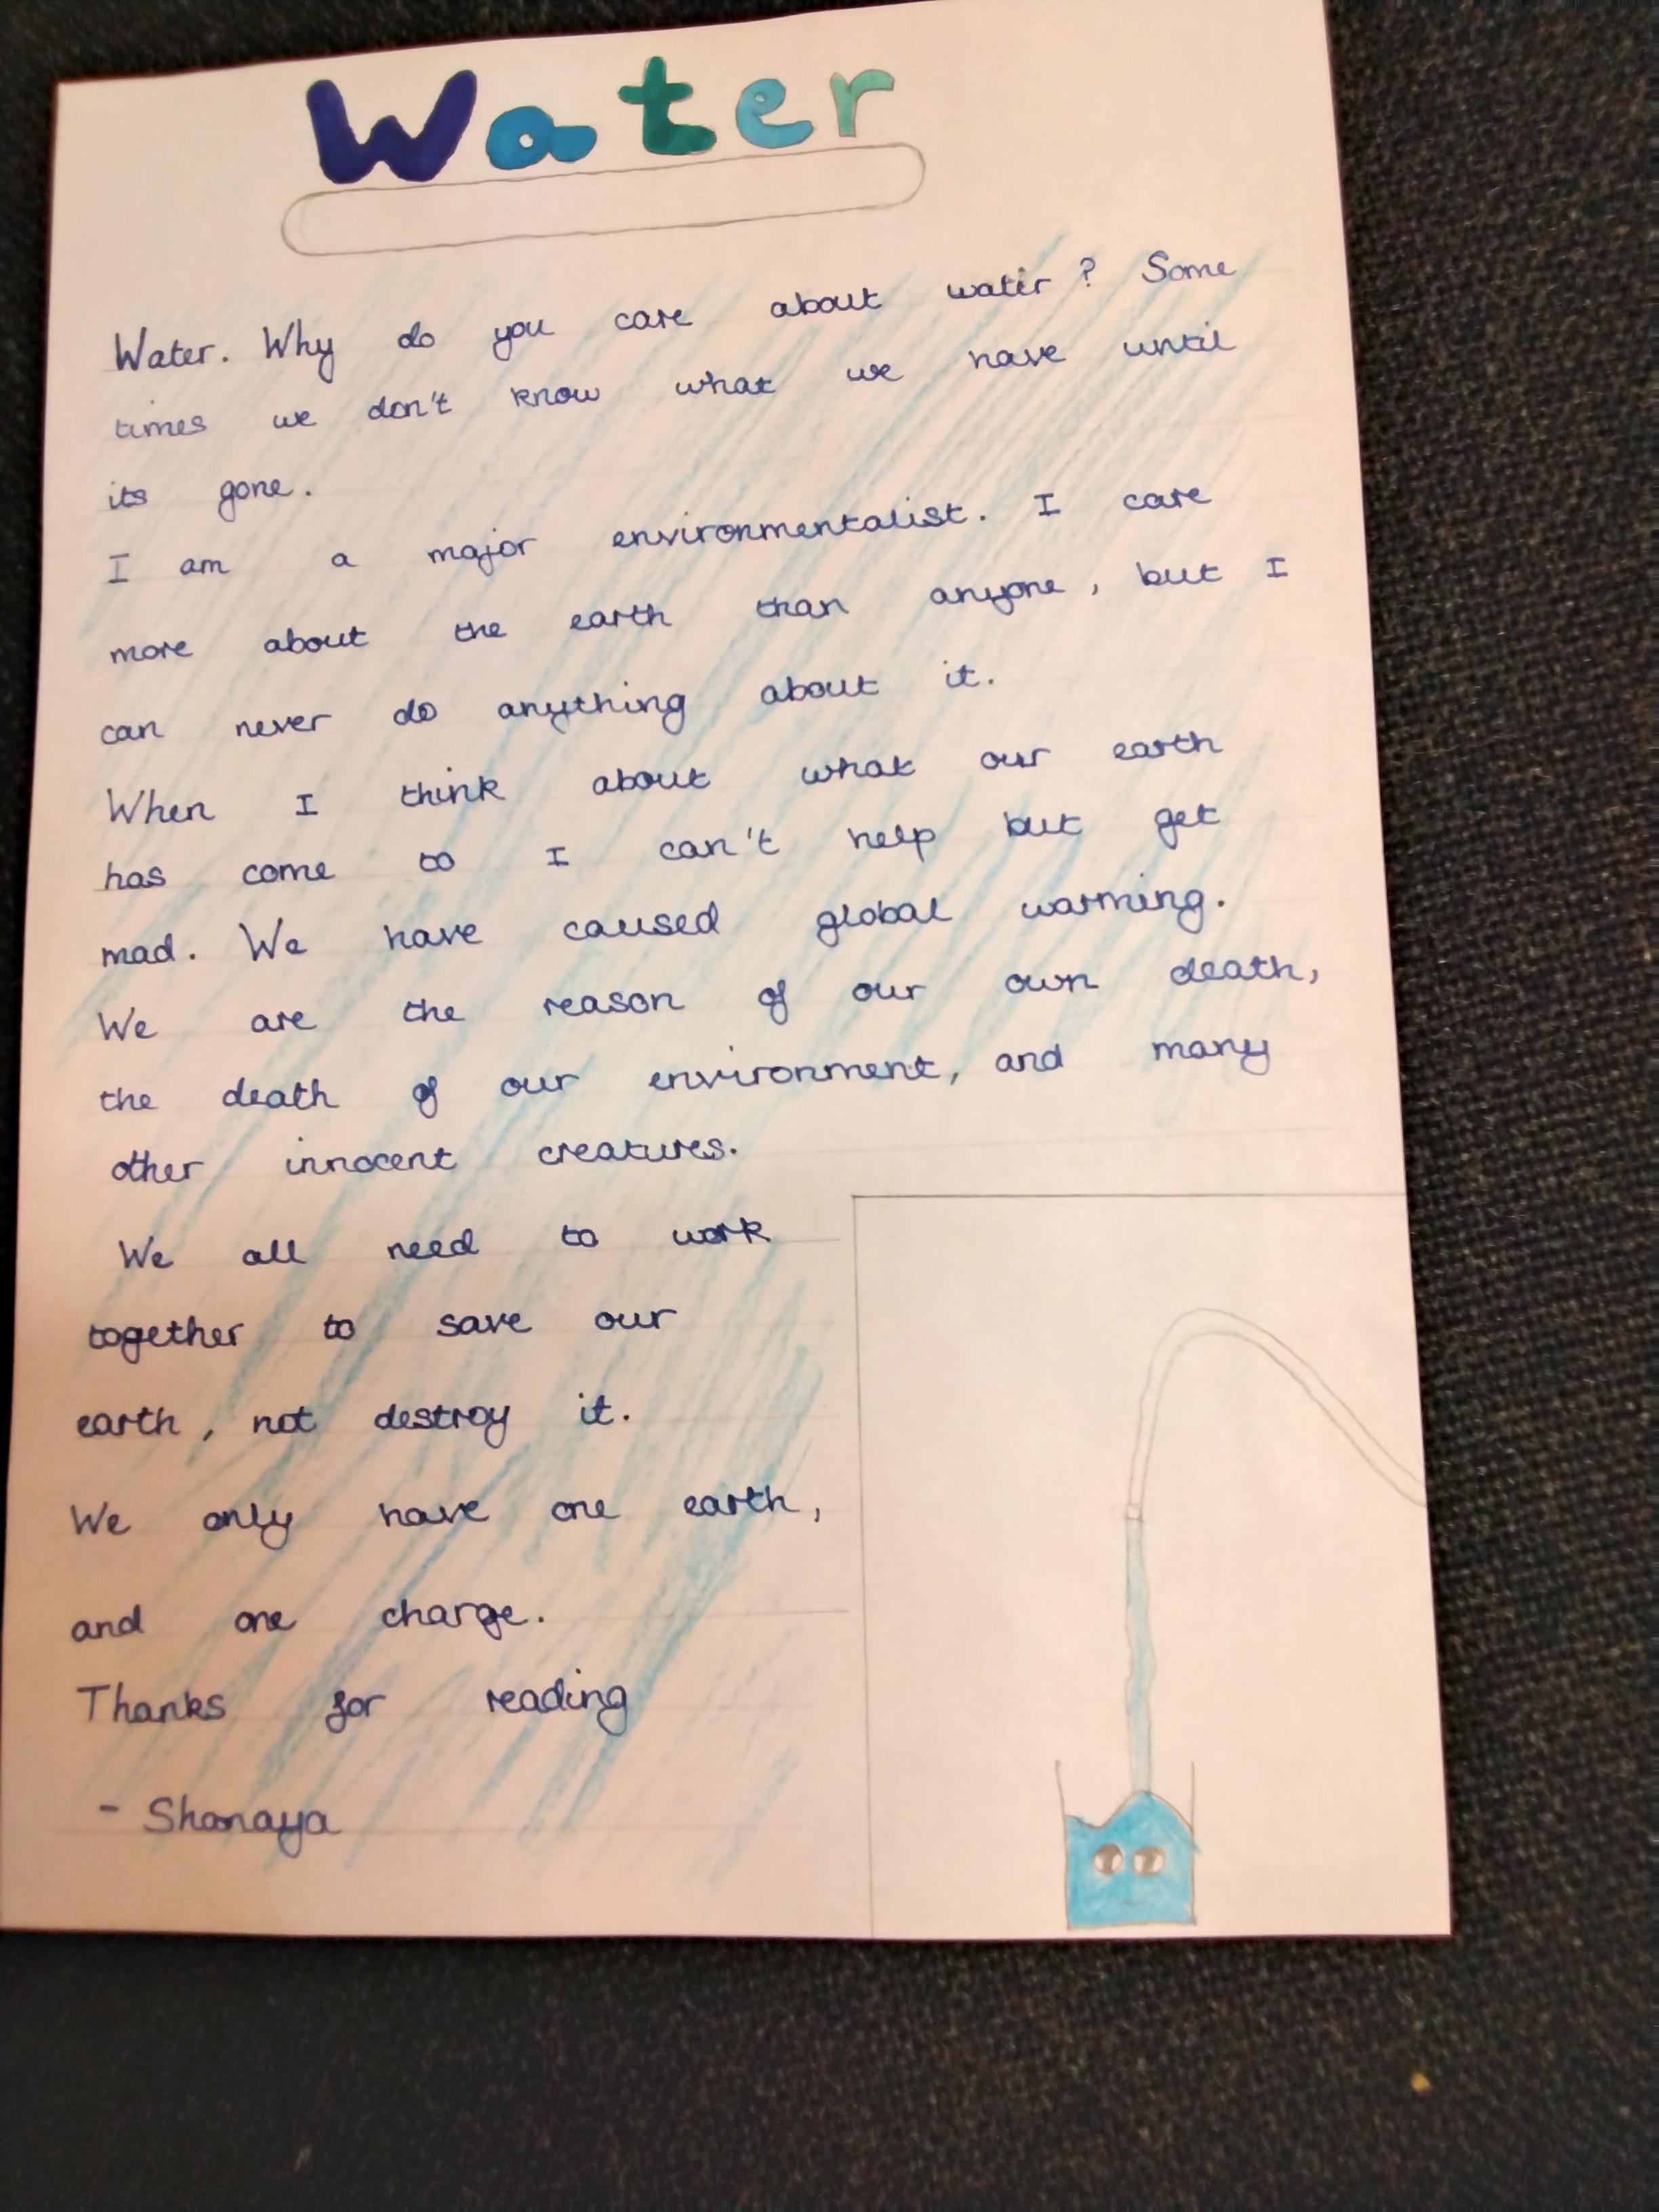 Water
Water. Why do you care about water? Some
times we don't know what we have until
its gone.
I am a major environmentalist. I care
more about the earth than anyone, but I
can never do anything about it.
When I think about what our earth
has come to I can't help but get
mad. We have caused global warming.
We are the reason of our own death,
the death of our environment, and many
other innocent creatures.
We all need to work
together to save our
earth, not destroy it.
We only have one earth,
and one charge.
Thanks for reading
- Shanaya